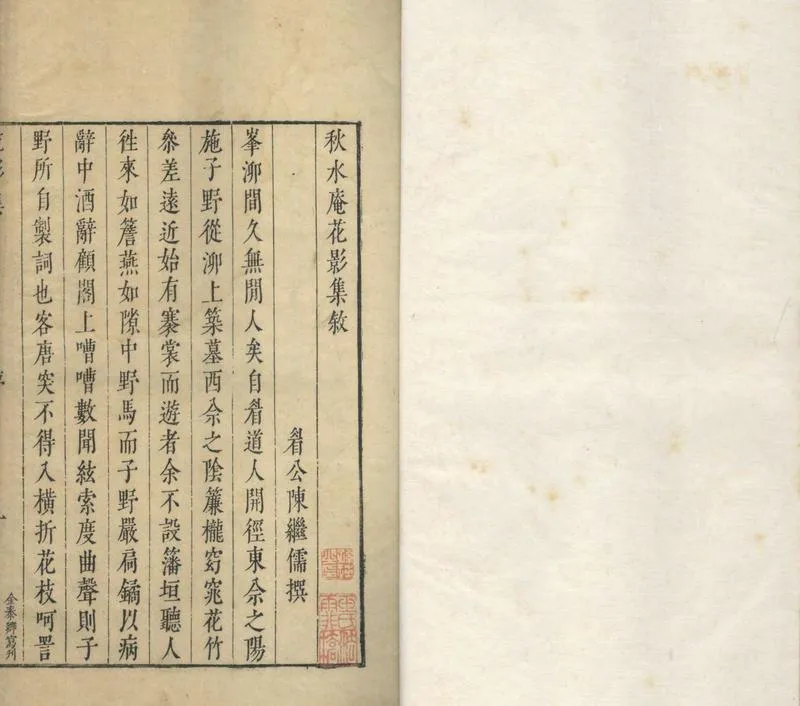 秋水庵花影集敘
眷公陳繼儒撰
峯泖間久無閒人矣自眷道人開徑東佘之陽
施子野從泖上築墓西佘之陰簾櫳窈窕花竹
叅差遠近始有褰裳而遊者余不設籓垣聽人
徃來如簷燕如隙中野馬而子野嚴扃鐍以病
辭中酒辭顧閣上嘈嘈數聞絃索度曲聲則子
野所自製詞也客唐突不得入橫折花枝呵詈
花影集
序
一
全泰卿寫刋